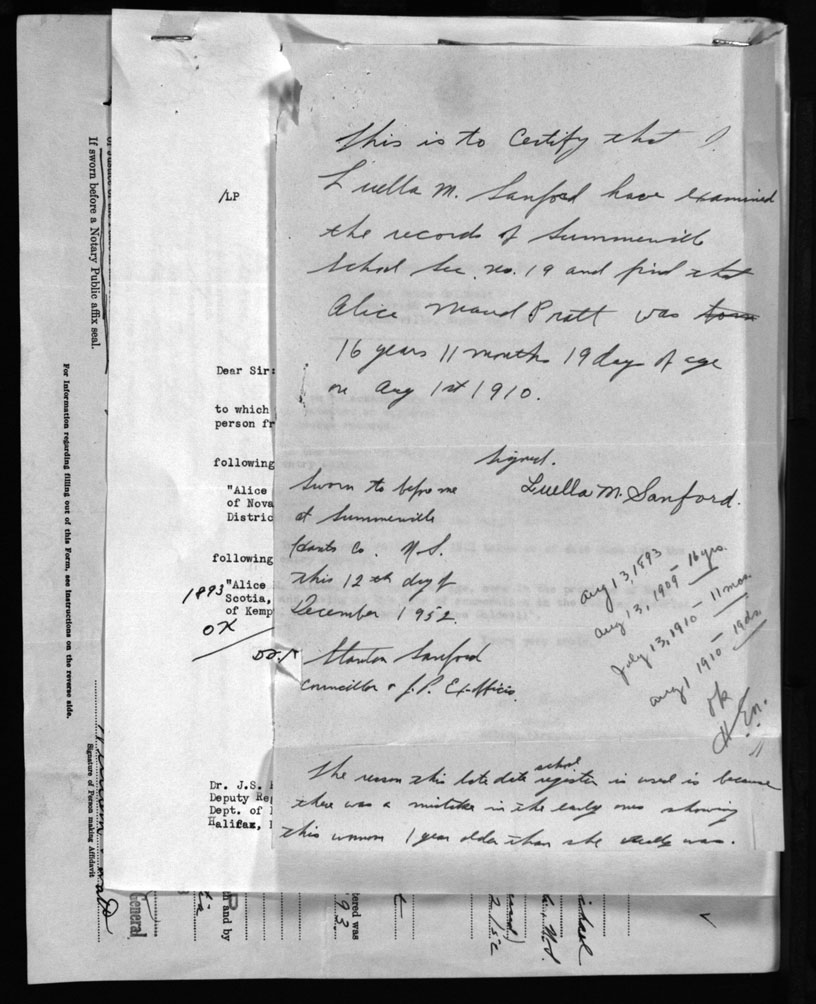 This is to Certify that I
Luella M. Sanford have examined
the records of Summerville
School Sec. no. 19 and find that
Alice Maud Pratt was born
16 years 11 months 19 days of age
on Aug 1st 1910.
Signed.
Luella M. Sanford.
Sworn to before me
at Summerville
Hants Co. N.S.
this 12th day of
December 1952
Stanton Sanford
Councillor & J.P. Ex-Officio.
Aug 13, 1893
Aug 13, 1909 – 16 yrs.
July 13, 1910 – 11 mos.
Aug 1 1910 – 19 ds.
ok
The reason this late date school register is used is because
there was a mistake in the early ones showing
this woman 1 year older than she really was.
/LP
Dear Sir:
to which
person fr
following
"Alice
of Nova
Distric
following
"Alice
Scotia,
of Kemp
1893
OK
Dr. J.S.
Deputy Reg
Dept. of
Halifax,
If sworn before a Notary Public affix seal.
For Information regarding filling out of this Form, see instructions on the reverse side.
Signature of Person making Affidavit
General
h and by
tered was
93.
ichael
N.S.